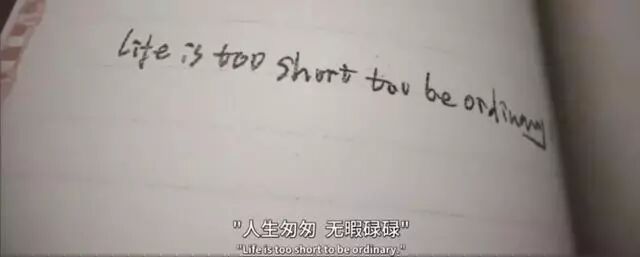 Life is too short too be ordinary
"人生匆匆 无暇碌碌"
"Life is too short to be ordinary."